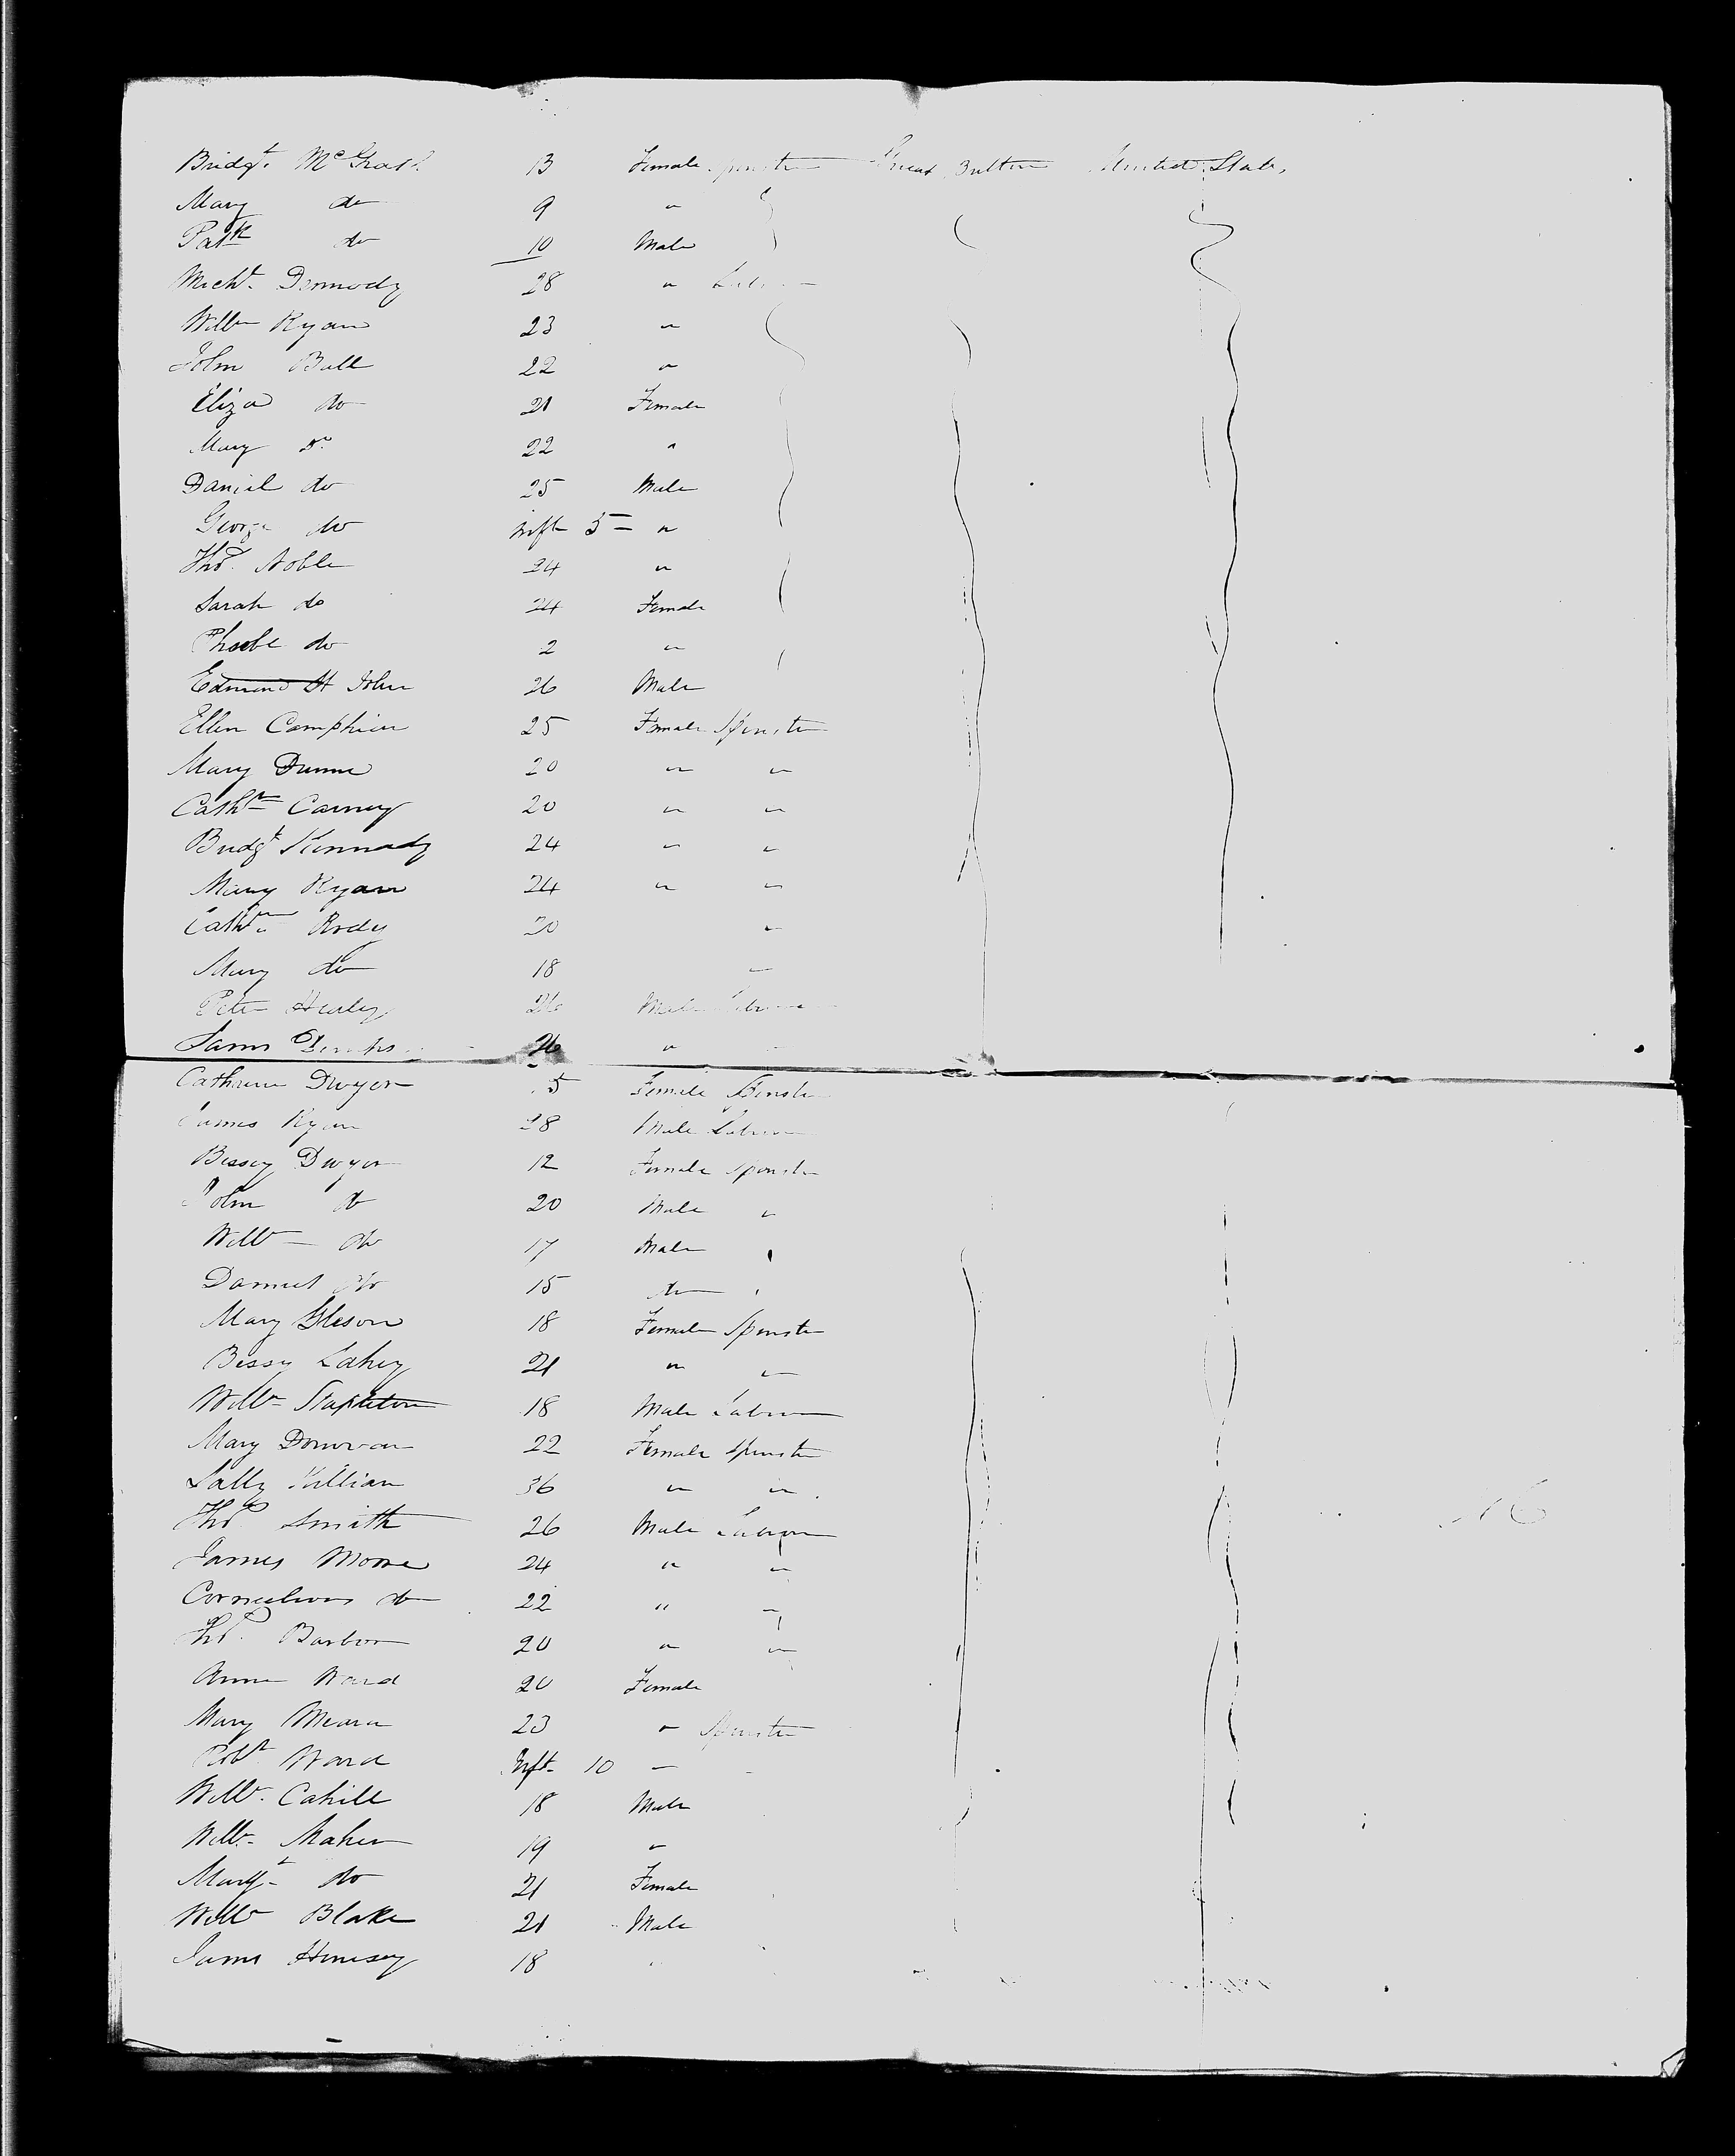 Bridgt. McGrath 13 Female Spinster Great Britain United States
Mary do 9 "
Patk do 10 Male
Michl. Dermody 28 " Labourer
Willm Ryan 23 "
John Ball 22 "
Eliza do 21 Female
Mary Do 22 "
Daniel do 25 Male
George do inft 5 "
Thos. Noble 24 "
Sarah do 24 Female
Phoebe do 2 "
Edmund St John 26 Male
Ellen Camphier 25 Female Spinster
Mary Dunne 20 " "
Cathne Carney 20 " "
Bridgt Kennady 24 " "
Mary Ryan 24 " "
Cathne Rody 20 "
Mary do 18 "
Peter Hurley 26 Male Labourer
James 26 "
Catherine Dwyer 5 Female Spinster
James Ryan 28 Male Labourer
Bessey Dwyer 12 Female Spinster
John do 20 Male "
Willm do 17 Male "
Daniel do 15 do "
Mary Gleson 18 Female Spinster
Bessy Lahey 21 " "
Willm Stapleton 18 Male Labourer
Mary Donovan 22 Female Spinster
Sally Killian 36 " "
Thos. Smith 26 Male Labourer
James Moore 24 " "
Cornelious do 22 " "
Thos. Barbor 20 " "
Anne Ward 20 Female
Mary Meara 23 " Spinster
Robt Ward Inft 10
Willm. Cahill 18 Male
Willm. Maher 19 "
Margt. do 21 Female
Willm Blake 21 Male
James Hennesy 18 "